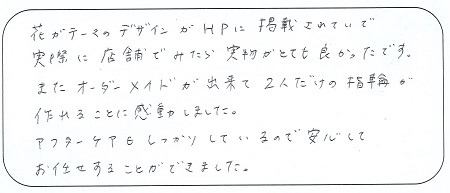 花がテーマのデザインがHPに掲載されていて
実際に店舗でみたら実物がとても良かったです。
またオーダーメイドが出来て2人だけの指輪が
作れることに感動しました。
アフターケアもしっかりしているので安心して
お任せすることができました。